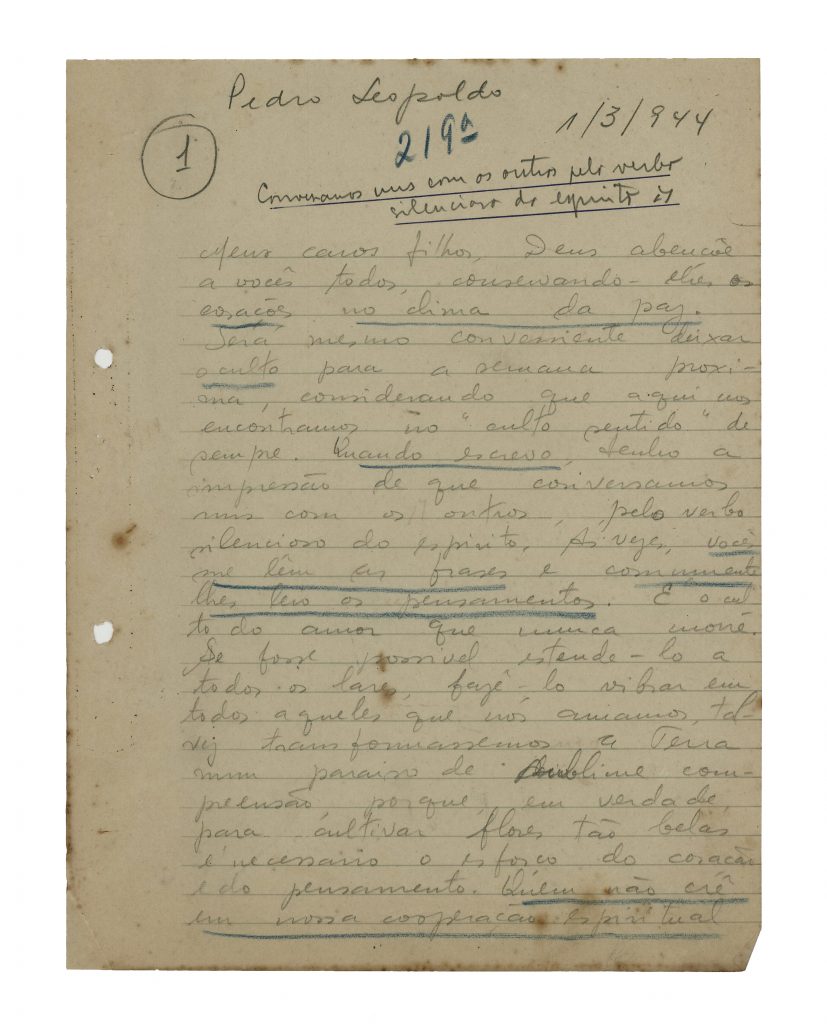 Pedro Leopoldo
1/3/944
219ª
1
Conversamos uns com os outros pelo verbo
silencioso do espirito
Meus caros filhos, Deus abençõe
a vocês todos, conservando-lhes os
corações no clima da paz.
Será mesmo conveniente deixar
o culto para a semana proxi-
ma, considerando que aqui nos
encontramos no "culto sentido" de
sempre. Quando escrevo, tenho a
impressão de que conversamos
uns com os outros, pelo verbo
silencioso do espirito. As vezes, vocês
me lêm as frases e comumente
lhes leio os pensamentos. É o cul
to do amor que nunca morre.
Se fosse possivel estende-lo a
todos os lares, fazê-lo vibrar em
todos aqueles que nós amamos, tal-
vez transformassemos a Terra
num paraiso de sublime com-
preensão, porque, em verdade,
para cultivar flores tão belas
é necessario o esforço do coração
e do pensamento. Quem não crê
em nossa cooperação espiritual